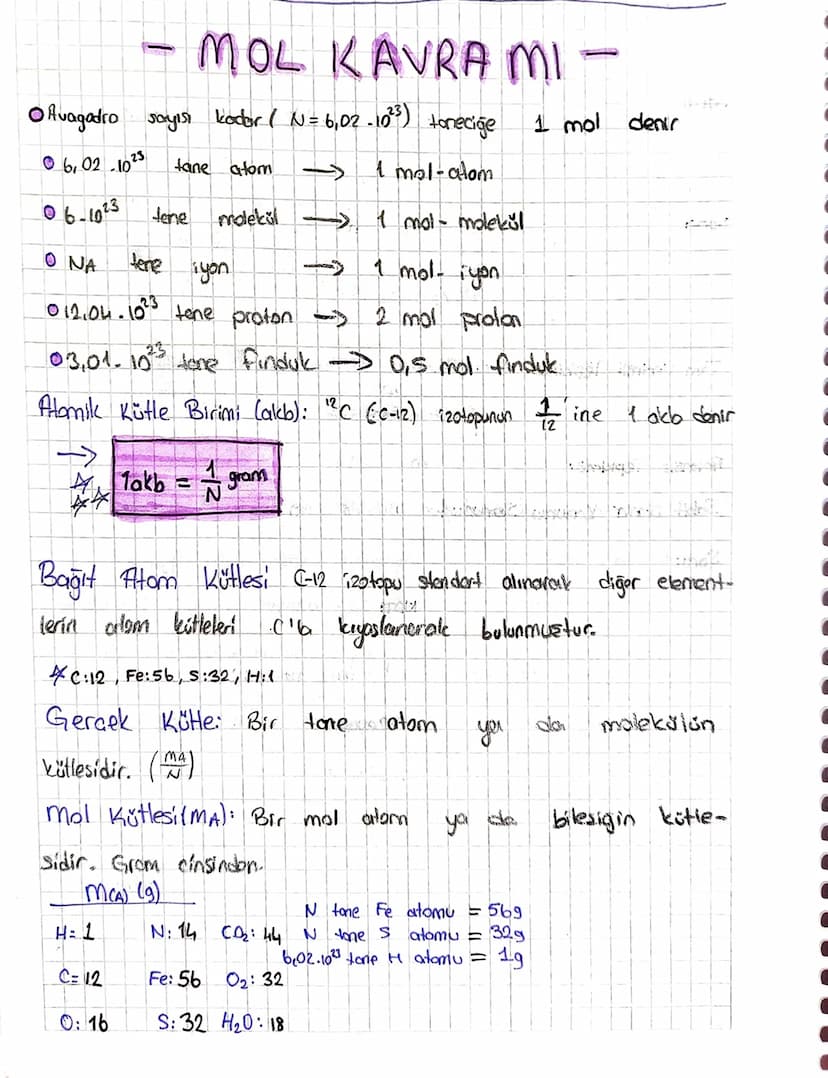 - MOL KAVRAMI -
Avagadro sayısı kadar ( N = 6,02 . 10²³) taneciğe 1 mol denir
6,02 . 10²³ tane atom → 1 mol-atom
6 . 10²³ tane molekül → 1 mol - molekül
NA tane iyon → 1 mol - iyon
12,04 . 10²³ tane proton → 2 mol proton
3,01 . 10²³ tane fınduk → 0,5 mol. fınduk
Atomik Kütle Birimi (akb): ¹²C (C-12) izotopunun 1/12 'ine 1 akb denir
→
1akb = 1/N gram
Bağıt Atom Kütlesi C-12 izotopu standart alınarak diğer element-
lerin atom kütleleri C'la kıyaslanarak bulunmuştur.
C:12 , Fe:56, S:32, H:1
Gerçek Kütle: Bir tane atom ya da molekülün
kütlesidir. (MA/N)
Mol Kütlesi (MA): Bir mol atom ya da bileşiğin kütle-
sidir. Gram cinsinden.
M(A) (g)
N tane Fe atomu = 56g
H= 1 N: 14 CO₂: 44 N tane S atomu = 32g
6,02.10²³ tane H atomu = 1g
C= 12 Fe: 56 O₂: 32
O: 16 S: 32 H₂O: 18